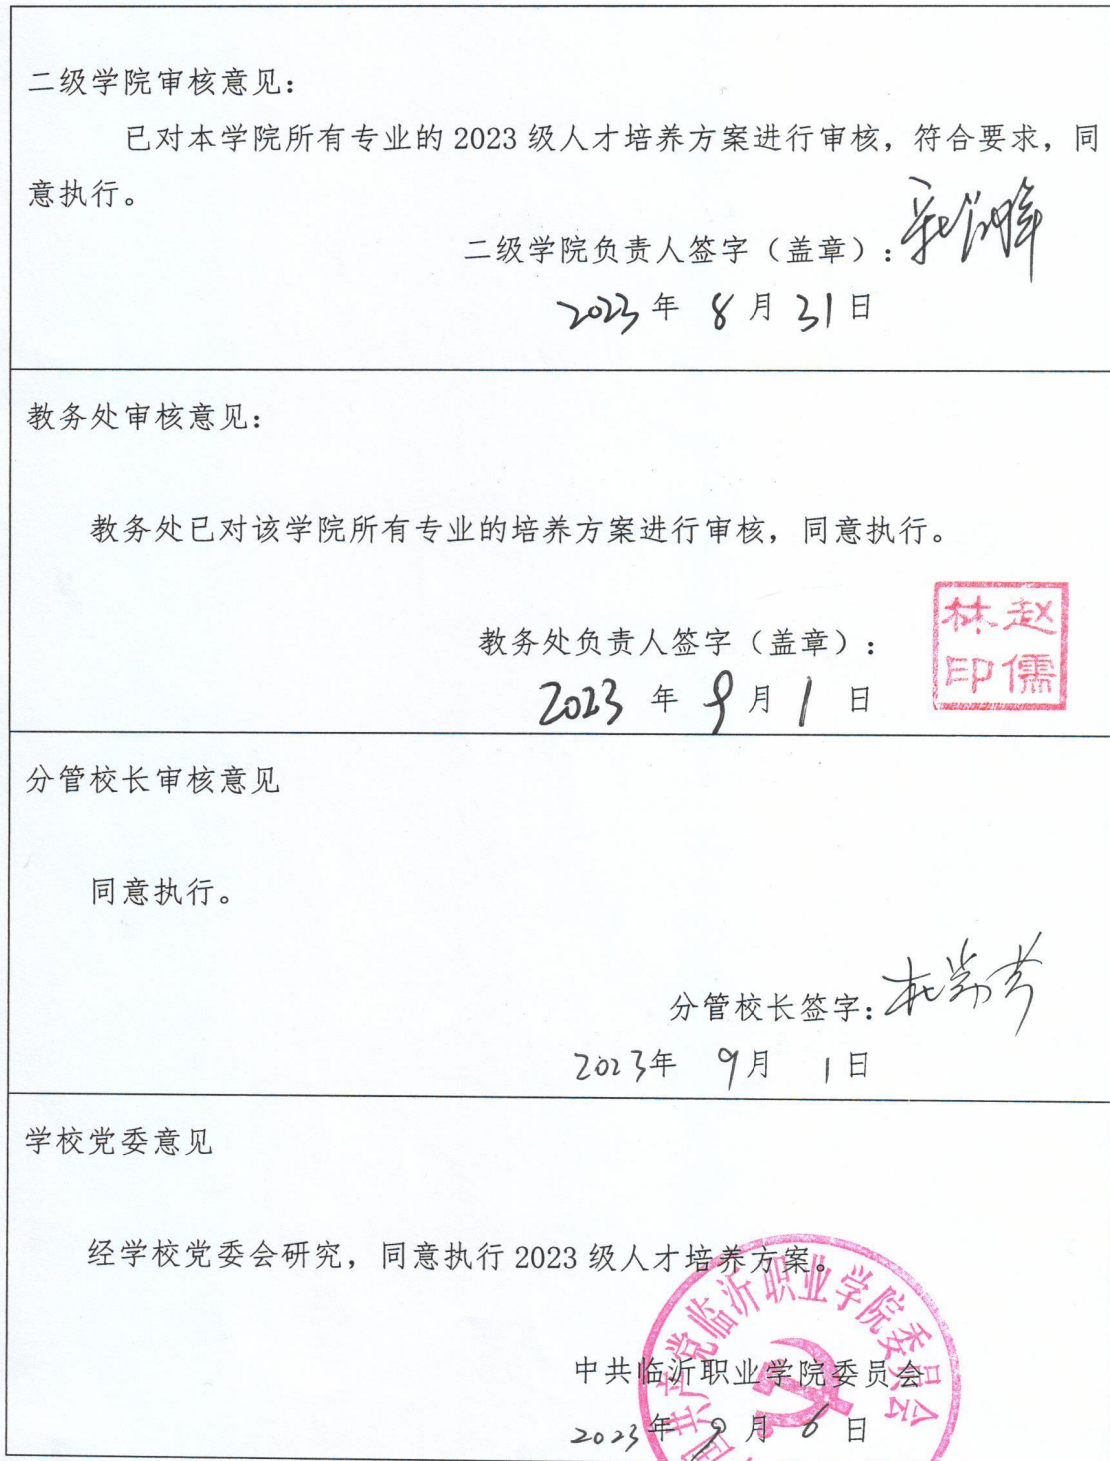 二级学院审核意见：
已对本学院所有专业的 2023 级人才培养方案进行审核，符合要求，同
意执行。
二级学院负责人签字（盖章）：
2023 年 8 月 31 日
教务处审核意见：
教务处已对该学院所有专业的培养方案进行审核，同意执行。
教务处负责人签字（盖章）：
赵儒林印
2023 年 9 月 1 日
分管校长审核意见
同意执行。
分管校长签字：
2023年 9月 1日
学校党委意见
经学校党委会研究，同意执行 2023 级人才培养方案。
中共临沂职业学院委员会
2023年 9 月 6 日
国共产党临沂职业学院委员会